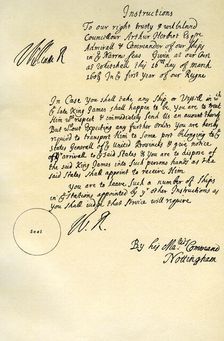 Instructions
To our right trusty & welbeloved
Councellour Arthur Herbert Esqre
Admirall & Commander of our Ships
in ye Narrow Seas Given at our Court
at Whitehall this 16th day of March
1688/9 in ye first year of our Reigne
William R
In Case you shall take any Ship or Vessell in wch
ye late King James shall happen to be, you are to treat
Him wth respect & immediately send Us an account thereof
But wthout Expecting any further Order you are hereby
required to transport Him to some Port belonging to ye
States Generall of ye United Provinces & give notice
of arrivall to said States & you are to dispose of
the said King James into such persons hands as the
said States shall appoint to receive Him.
You are to leave such a number of Ships
in ye Stations appointed by yr other Instructions as
you shall judge that Service will require
W. R.
Seal
By his Mats Command
Nottingham